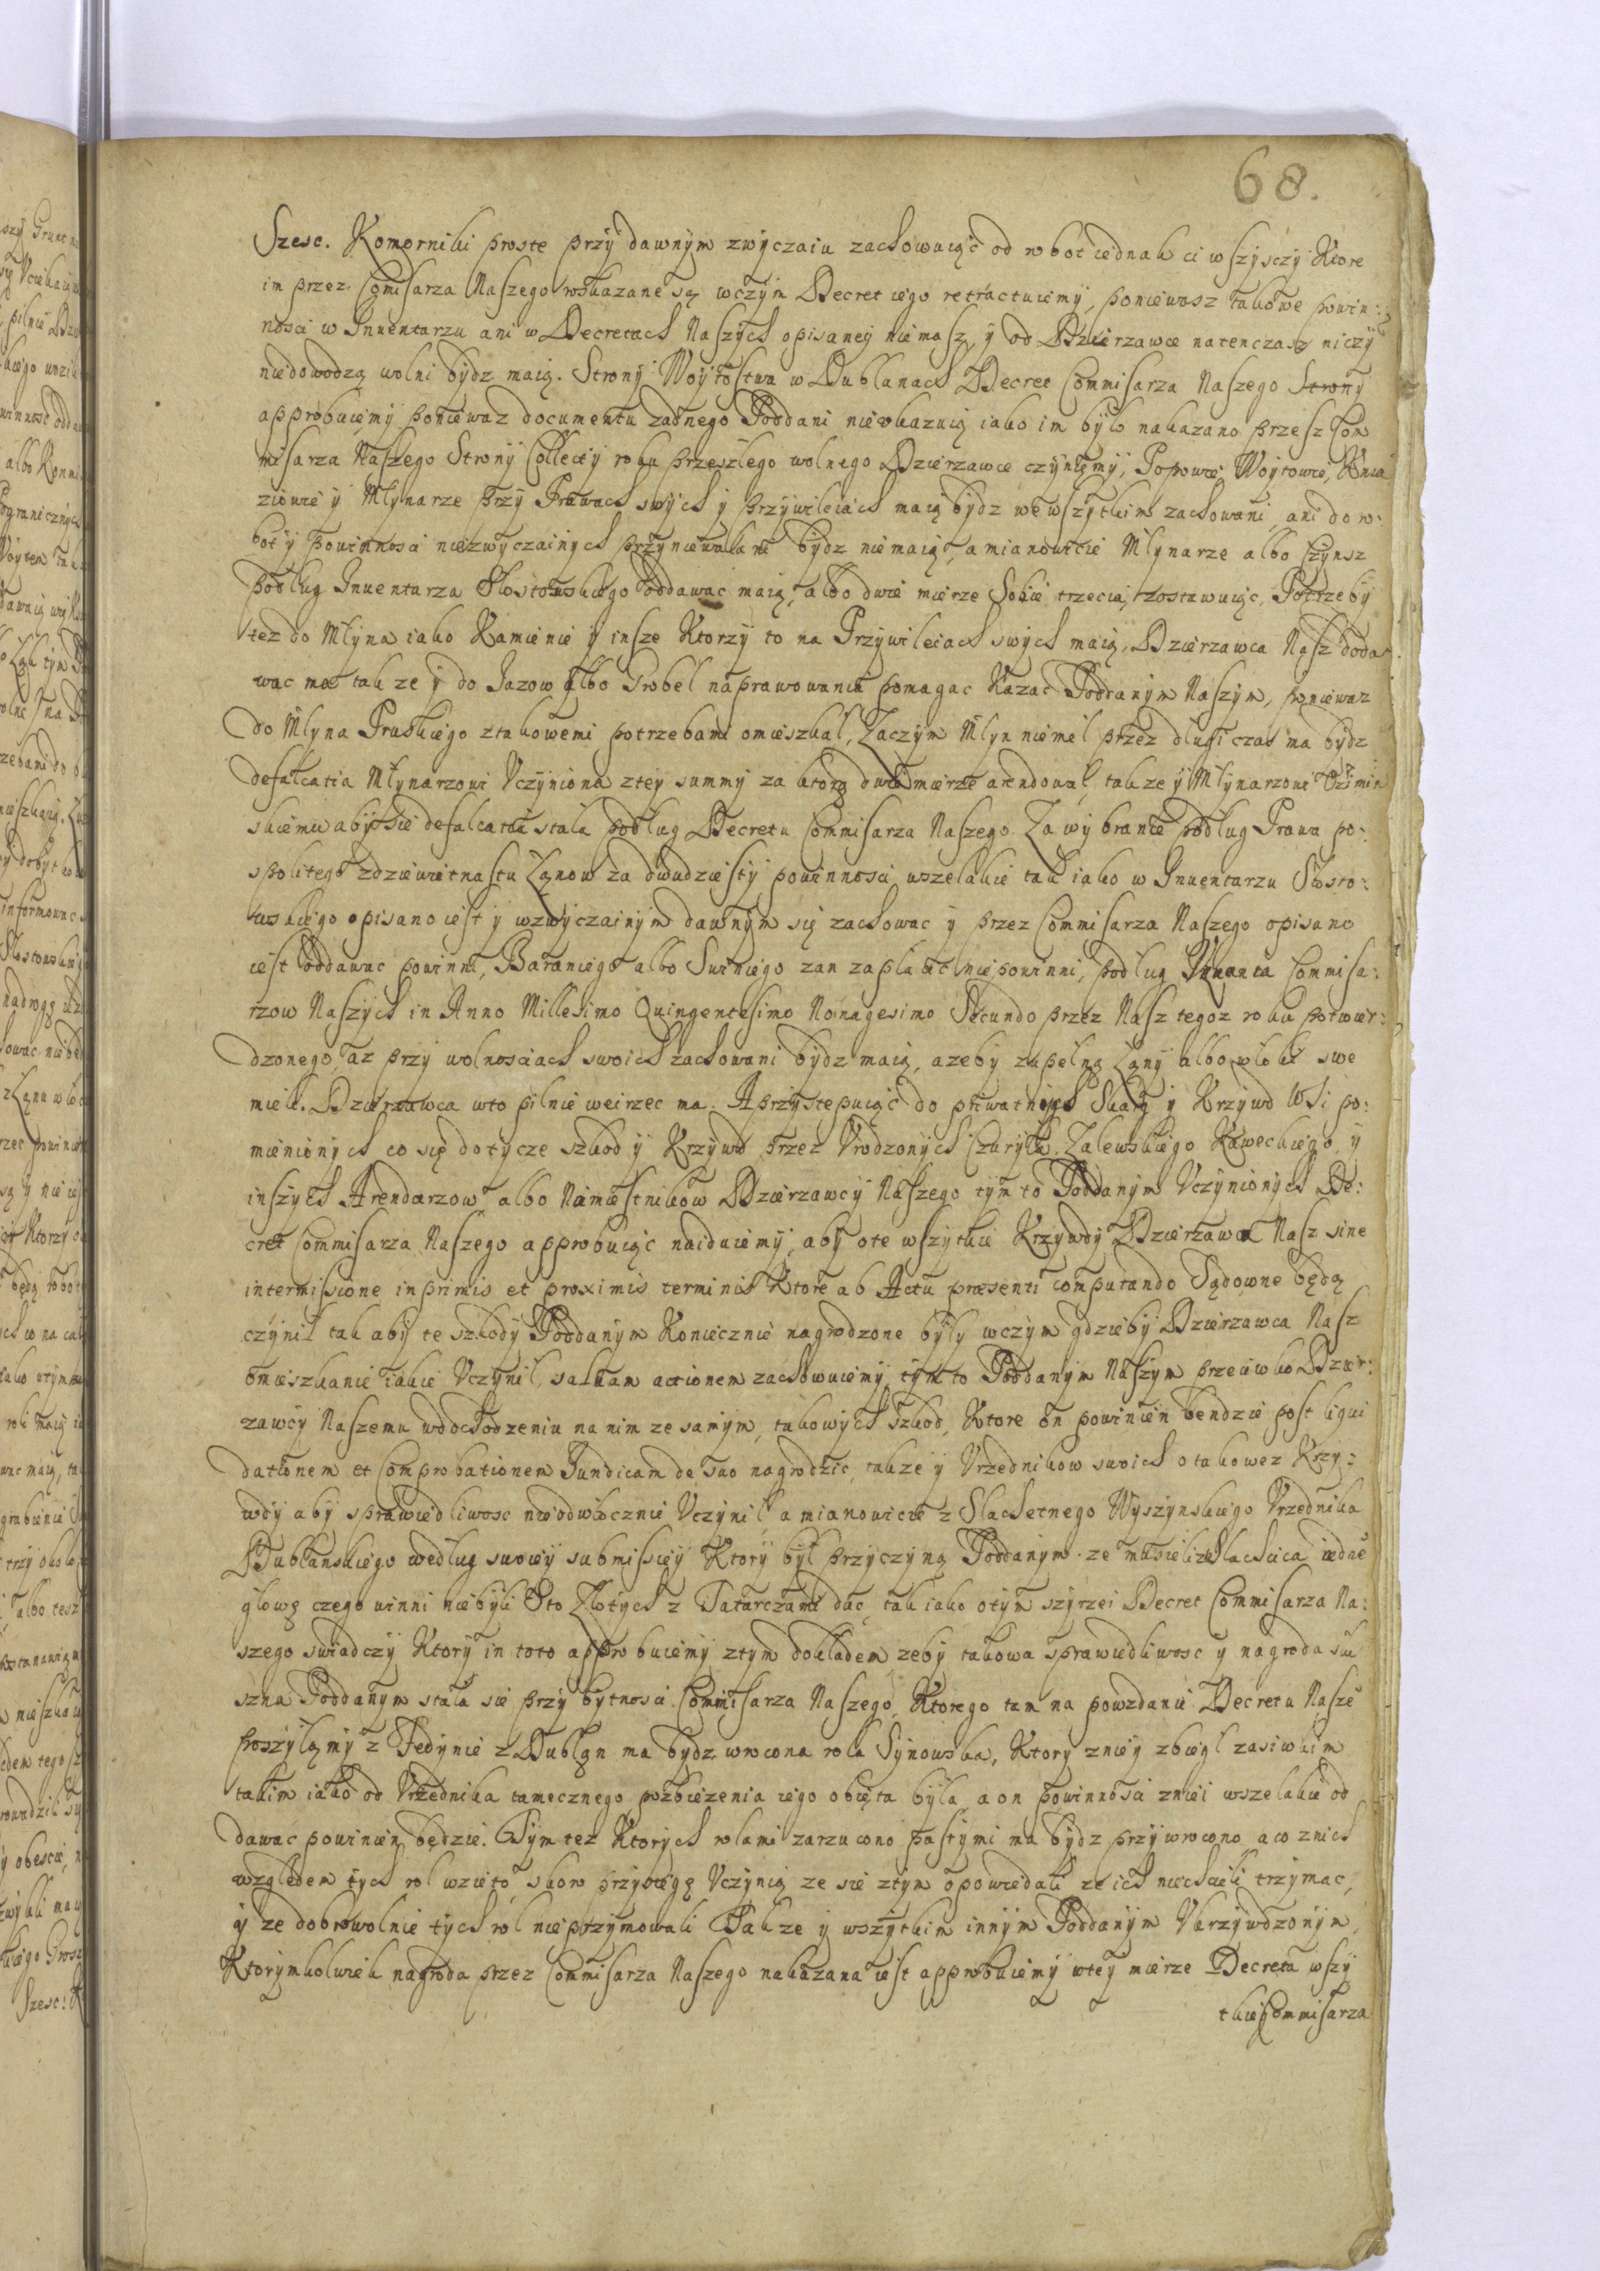 68.
Szesc. Komorniki proste przy dawnym zwyczaiu zachowuiąc od robot iednak ci wszysczy Ktore
im przez Comisarza Naszego wskazane są wczym Decret iego retractuiemy, poniewasz takowe powin:
nosci w Inuentarzu ani w Decretach Naszych opisaney niemasz, y od Dzierzawce natenczasz niczy
niedowodzą wolni bydz maią. Strony Woytostwa w Dublanach Decret Commisarza Naszego Strony
approbuiemy poniewaz documentu zadnego Poddani nieokazuią iako im było nakazano przesz Com
misarza Naszego Strony Collecty roku przeszlego wolnego Dzierzawce czyniemy, Popowie, Woytowie, Knia
ziowie y Mlynarze przy Prawach swych y przywileiach maią bydz wewszytkim zachowani, ani do ro:
bot y powinnosci niezwyczainych przyniewalani bydz niemaią, a mianowicie Mlynarze albo Czynsz
podług Inuentarza Słostowskiego oddawac maią, albo dwie mierze Sobie trzecią zostawuiąc, Potrzeby
tez do Młyna iako Kamienie y insze Ktorzy to na Przywileiach swych maią, Dzierzawca Nasz doda
wac ma także y do Jazow albo Grobel naprawowania pomagac Kazac Poddanym Naszym, poniewaz
do Młyna Pruskiego ztakowemi potrzebami omieszkal, Zaczym Młyn niemel przez długi czas ma bydz
defalcatia Młynarzowi Vczyniona ztey summy za ktorą dwie mierze arendował, także y Młynarzowi Ozimin
skiemu aby sie defalcatia stala podług Decretu Commisarza Naszego Za wybranie podług Prawa po:
spolitego zdziewietnastu Łanow za dwudziesty powinnosci wszelakie tak iako w Inuentarzu Słosto:
wskiego opisano iest y wzwyczainym dawnym się zachowac y przez Commisarza Naszego opisano
iest oddawac powinni, Baraniego albo Swiniego zan zaplacic niepowinni, podług Vznania Commisa:
rzow Naszych in Anno Millesimo Quingentesimo Nonagesimo Secundo przez Nasz tegoz roku potwier:
dzonego, az przy wolnosciach swoich zachowani bydz maią, azeby zupełną Łany albo włoki swe
mieli. Dzierzawca wto pilnie weirzec ma. A przystepuiąc do priwatnych Skarg y Krzywd Wsi po:
mienionych co się dotycze szkod y Krzywd przez Vrodzonych Czuryła, Zalewskiego Kaweckiego, y
inszych Arendarzow albo Namiestnikow Dzierzawcy Naszego tym to Poddanym Vczynionych De:
cret Commisarza Naszego approbuiąc naiduiemy, aby ote wszytkie Krzywdy Dzierzawca Nasz sine
intermissione in primis et proximis terminis Ktore ab Actu præsenti computando Sądowne będą
czynił tak aby te szkody Poddanym Koniecznie nagrodzone były wczym gdzieby Dzierzawca Nasz
omieszkanie iakie Vczynil, saluam actionem zachowuiemy, tym to Poddanym Naszym przeciwko Dzier:
zawcy Naszemu wdochodzeniu na nim ze samym, takowych szkod, Ktore on powinien bendzie post liqui
dationem et Comprobationem Iuridicam de suo nagrodzic, także y Vrzednikow swoich o takowez Krzy:
wdy aby sprawiedliwosc nieodwłocznie Vczynił, a mianowicie z Slachetnego Wyszynskiego Vrzednika
Dublanskiego według swoiey submissiey Ktory był przyczyną Poddanym ze musieli ze Slachcica iedne
głowę czego winni niebyli Sto Złotych z Tatarczami dac, tak iako otym szyrzei Decret Commisarza Na:
szego swiadczy Ktory in toto approbuiemy ztym dokladem zeby takowa sprawiedliwosc y nagroda słu
szna Poddanym stała sie przy bytnosci Commisarza Naszego, Ktorego tam na powzdanie Decretu Nasze
poszylamy z Fedynie z Dublan ma bydz wrocona rola Synowska, Ktory zniey zbiegl zasiwkiem
takim iako od Vrzednika tamecznego pozbiezenia iego obięta była, a on powinnosci zniei wszelakie od
dawac powinien będzie. Tym tez Ktorych rolami zarzucono pastymi ma bydz przywrocono, a co znich
względem tych rol wzieto, skoro przysiegę Vczynią ze sie ztym opowiedali ze ich niechcieli trzymac,
y ze dobrowolnie tych rol nieprzymowali Także y wszytkim innym Poddanym Vkrzywdzonym,
Ktorymkolwiek nagroda przez Commisarza Naszego nakazana iest approbuiemy wtey mierze Decreta wszy
tkie Commisarza